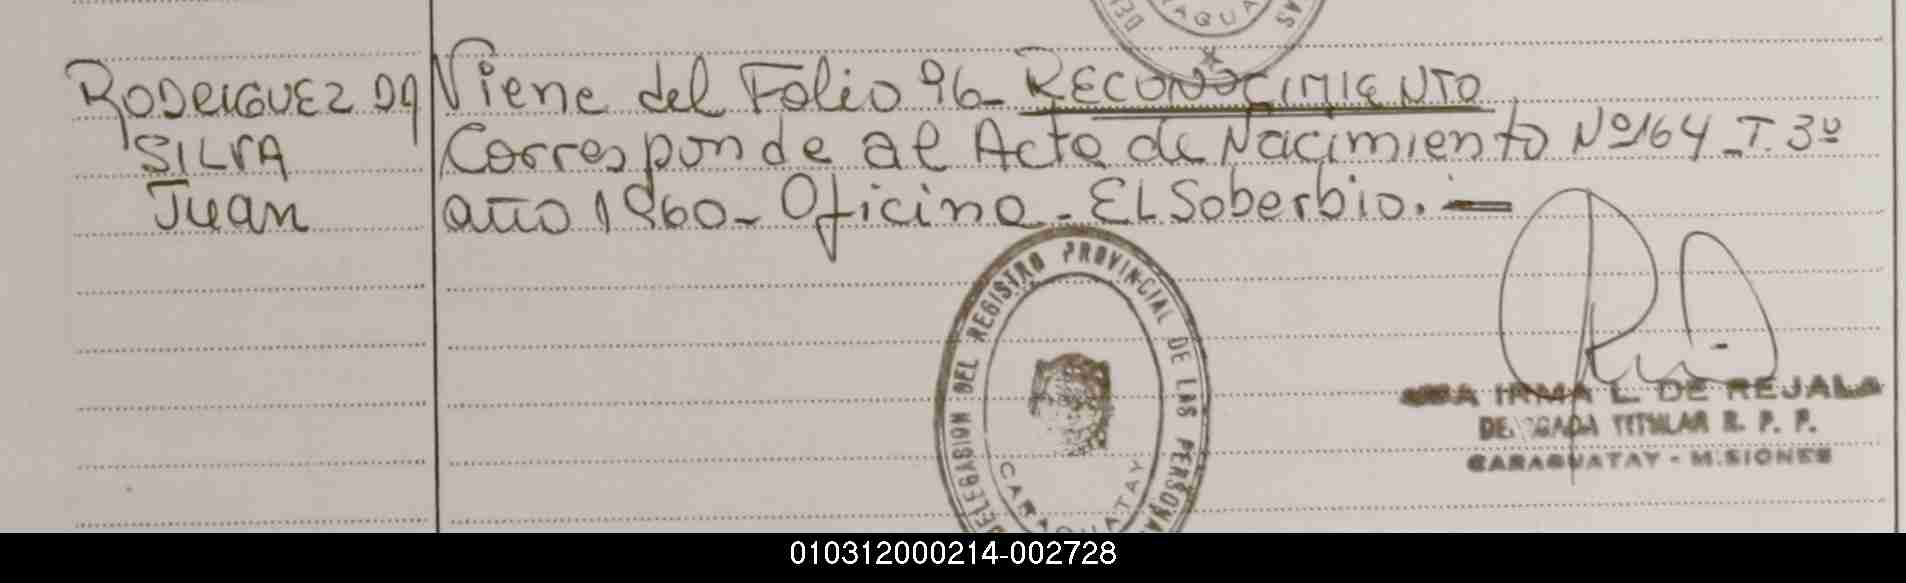 RODRIGUEZ DA
SILVA
Juan
Viene del Folio 96- RECONOCIMIENTO
Corresponde al Acta de Nacimiento Nº164-T.3º
año 1960- Oficina- EL Soberbio.-
DELEGASION DEL REGISTRO PROVINCIAL DE LAS PERSONA
CARAGUATAY
IRMA L. DE REJALA
DELEGADA TITULAR R. P. P.
CARAGUATAY - MISIONES
010312000214-002728